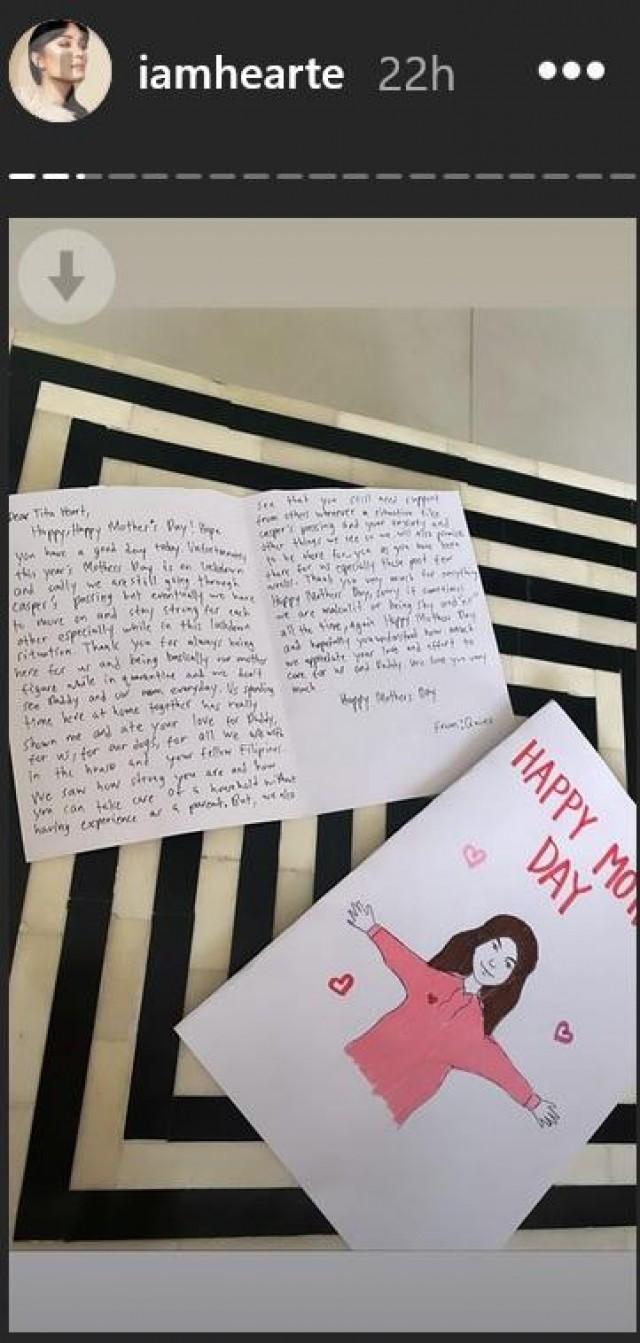 iamhearte 22h
Dear Tita Heart,
Happy, Happy Mother's Day! Hope
you have a good day today. Unfortunately
this year's Mothers Day is on lockdown
and sadly we are still going through
Casper's passing but eventually we have
to move on and stay strong for each
other especially while in this lockdown
situation. Thank you for always being
here for us and being basically our mother
figure while in quarantine and we don't
see Daddy and our mom everyday. Us spending
time here at home together has really
shown me and ate your love for Daddy,
for us, for our dogs, for all we are with
in the house and your fellow Filipinos.
We saw how strong you are and how
you can take care of a household without
having experience as a parent. But, we also
see that you still need support
from others whenever a situation like
Casper's passing and your anxiety and
other things we see so we will also promise
to be there for you as you have been
there for us especially these past few
weeks. Thank you very much for everything
Happy Mothers' Day, sorry if sometimes
we are makulit or being shy
all the time, again Happy Mothers Day
and hopefully you understand how much
we appreciate your love and effort to
care for us and Daddy. We love you very
much
Happy Mothers Day
From:
HAPPY MO
DAY